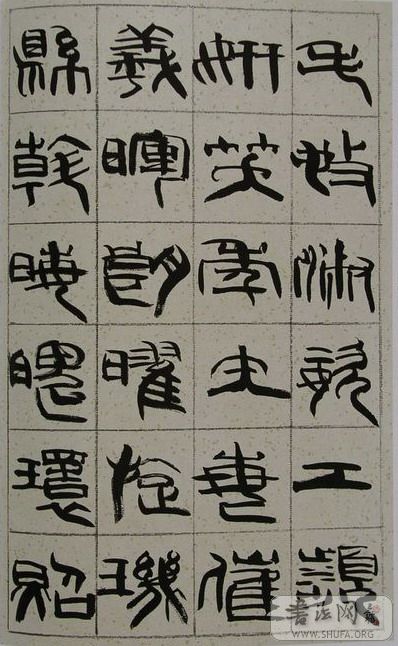 毛施淑姿工
妍笑年矢每催
羲暉朗曜旋璣
縣斡晦魄環照
書法网
WWW.SHUFA.ORG